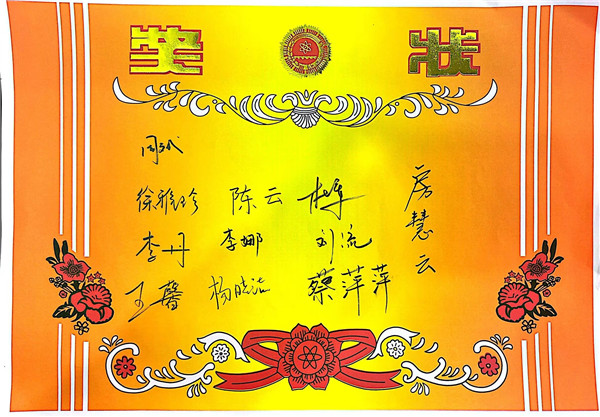 奖状
徐雅珍 陈云
李丹 李娜 刘流
王馨 杨晓洁 蔡萍萍
房慧云